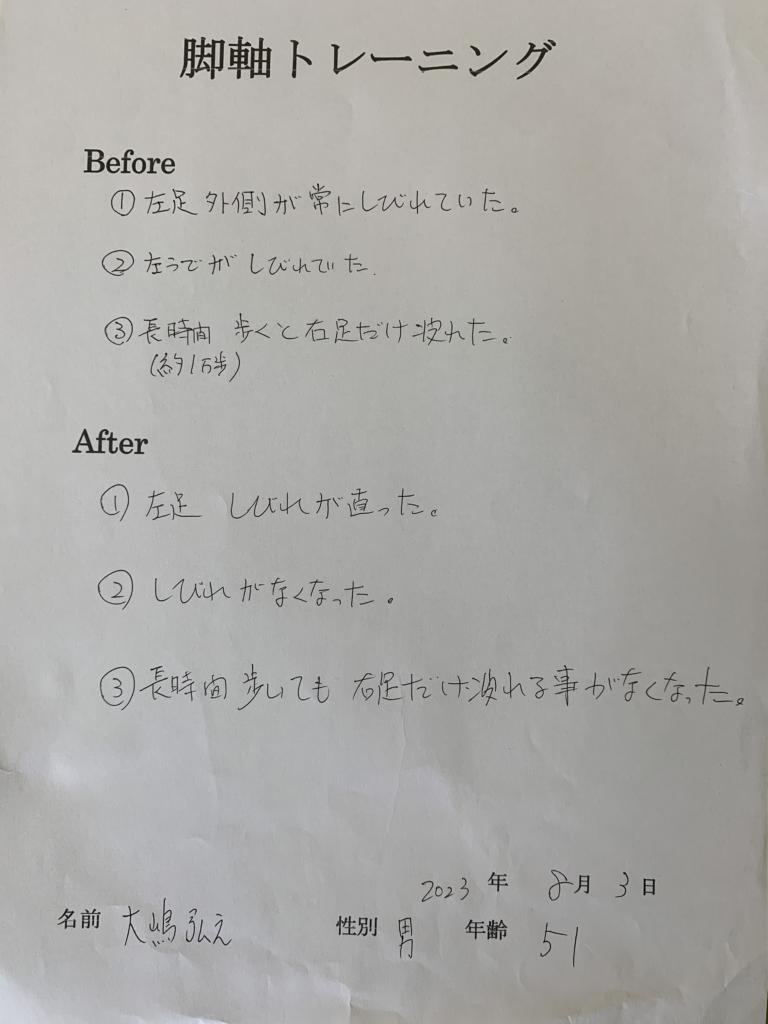 脚軸トレーニング
Before
① 左足 外側が常にしびれていた。
② 左うでが しびれていた.
③ 長時間 歩くと右足だけ疲れた。
(約1万歩)
After
① 左足 しびれが直った。
② しびれがなくなった。
③ 長時間 歩いても 右足だけ疲れる事がなくなった。
2023 年 8月 3日
名前 大嶋弘之 性別 男 年齢 51